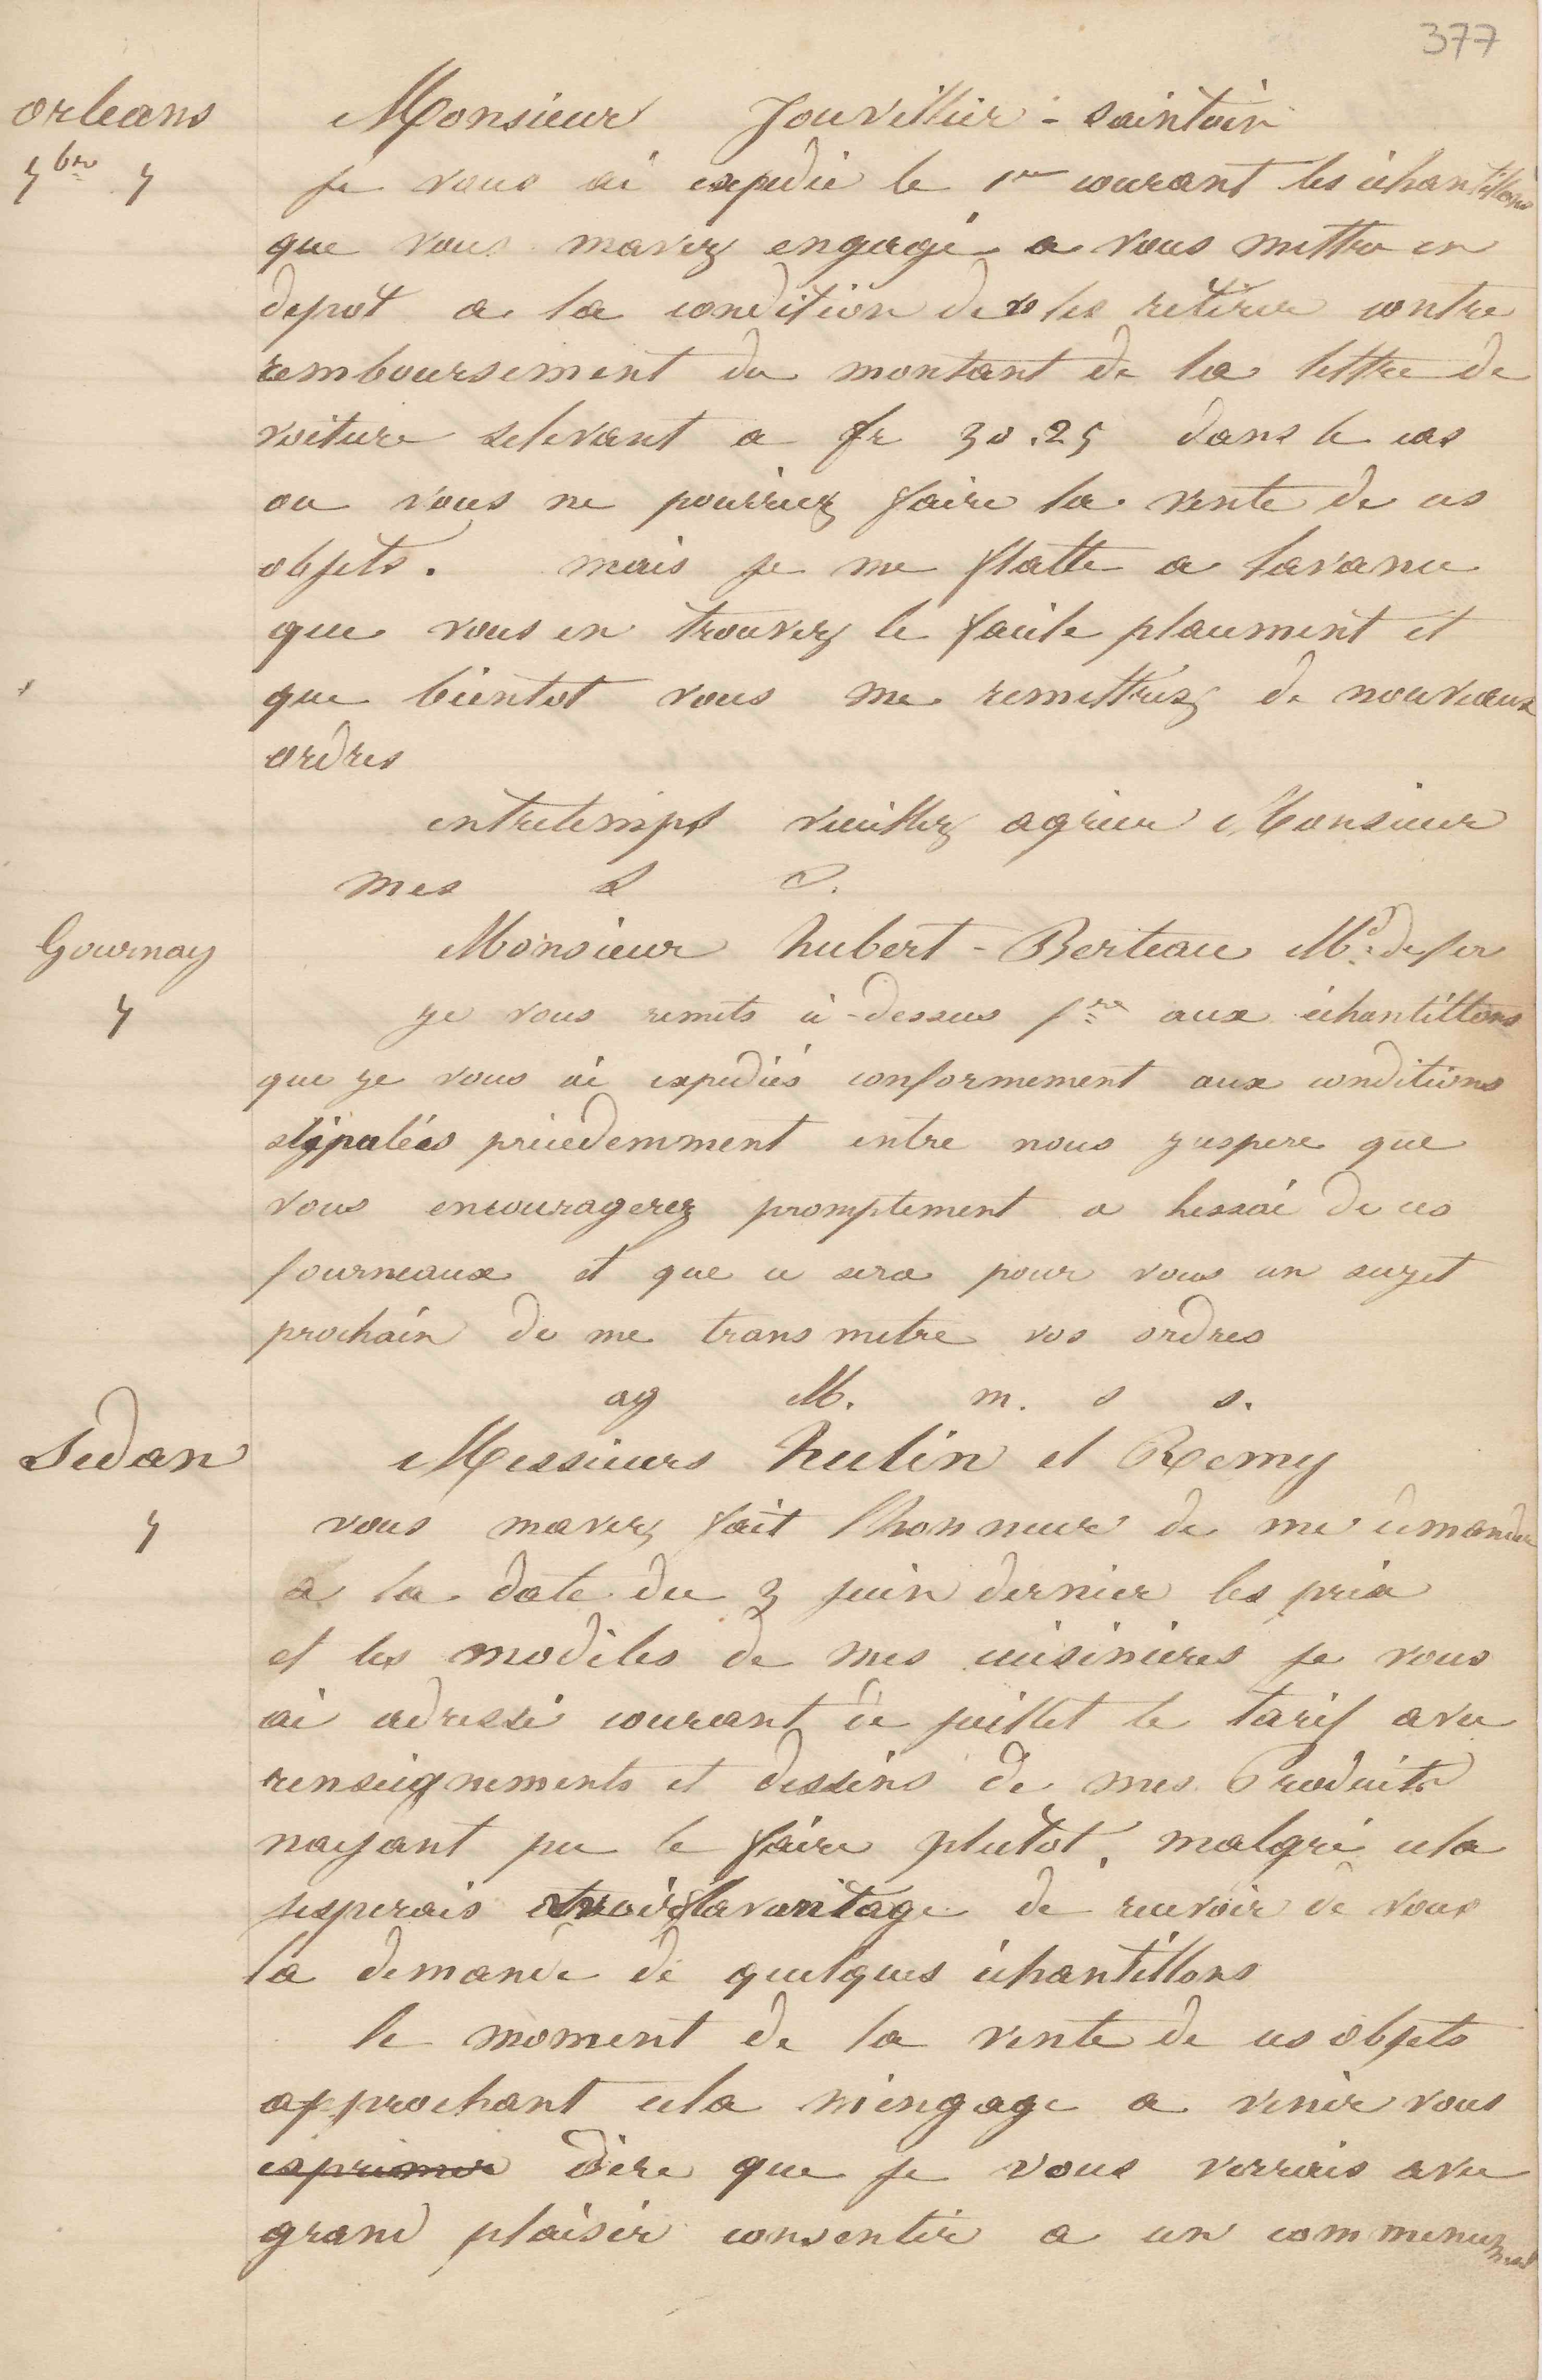 377
orleans
7bre 7
Monsieur Jouvellier - saintoin
je vous ai expedié le 1er courant les échantillons
que vous mavez engagé a vous mettre en
depot a la condition de les retirer contre
remboursement du montant de la lettre de
voiture selevant a fr 30.25 dans le cas
ou vous ne pourriez faire la vente de ces
objets. mais je me flatte a lavance
que vous en trouvez le facile placement et
que bientot vous me remettrez de nouveaux
ordres
entretemps veuillez agréer Monsieur
mes S C.
Gournay
7
Monsieur hubert - Berteau Md. de fer
je vous remets ci-dessus fre aux échantillons
que je vous ai expediés conformement aux conditions
stipulées précedemment entre nous jespere que
vous encouragerez promptement a lessai de ces
fourneaux et que ce sera pour vous un sujet
prochain de me trans metre vos ordres
ag M. m. s s.
Sedan
7
Messieurs hulin et Remy
vous mavez fait lhonneur de me demander
a la date du 3 juin dernier les prix
et les modèles de mes cuisinieres je vous
ai adressé courant de juillet le tarif avec
renseignements et dessins de mes Produits
nayant pu le faire plutot, malgré cela
jesperais lavantage de recevoir de vous
la demande de quelques échantillons
le moment de la vente de ces objets
approchant cela m'engage a venir vous
exprimer dire que je vous verrais avec
grand plaisir consentir a un commencement